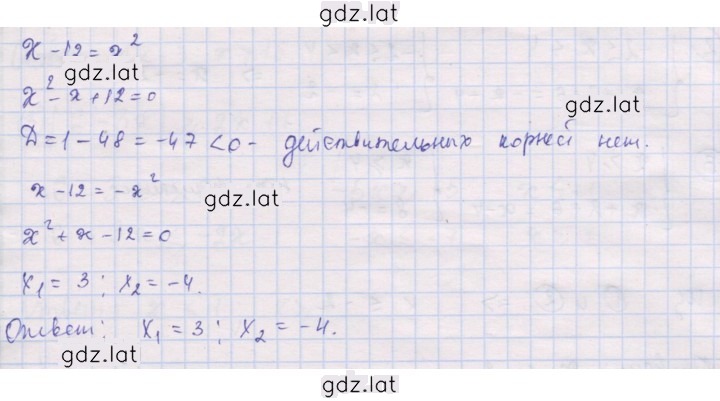 gdz.lat
x - 12 = x²
gdz.lat
x² - x + 12 = 0
gdz.lat
D = 1 - 48 = -47 < 0 - действительных корней нет.
x - 12 = -x²
gdz.lat
x² + x - 12 = 0
x₁ = 3; x₂ = -4.
Ответ: x₁ = 3; x₂ = -4.
gdz.lat
gdz.lat